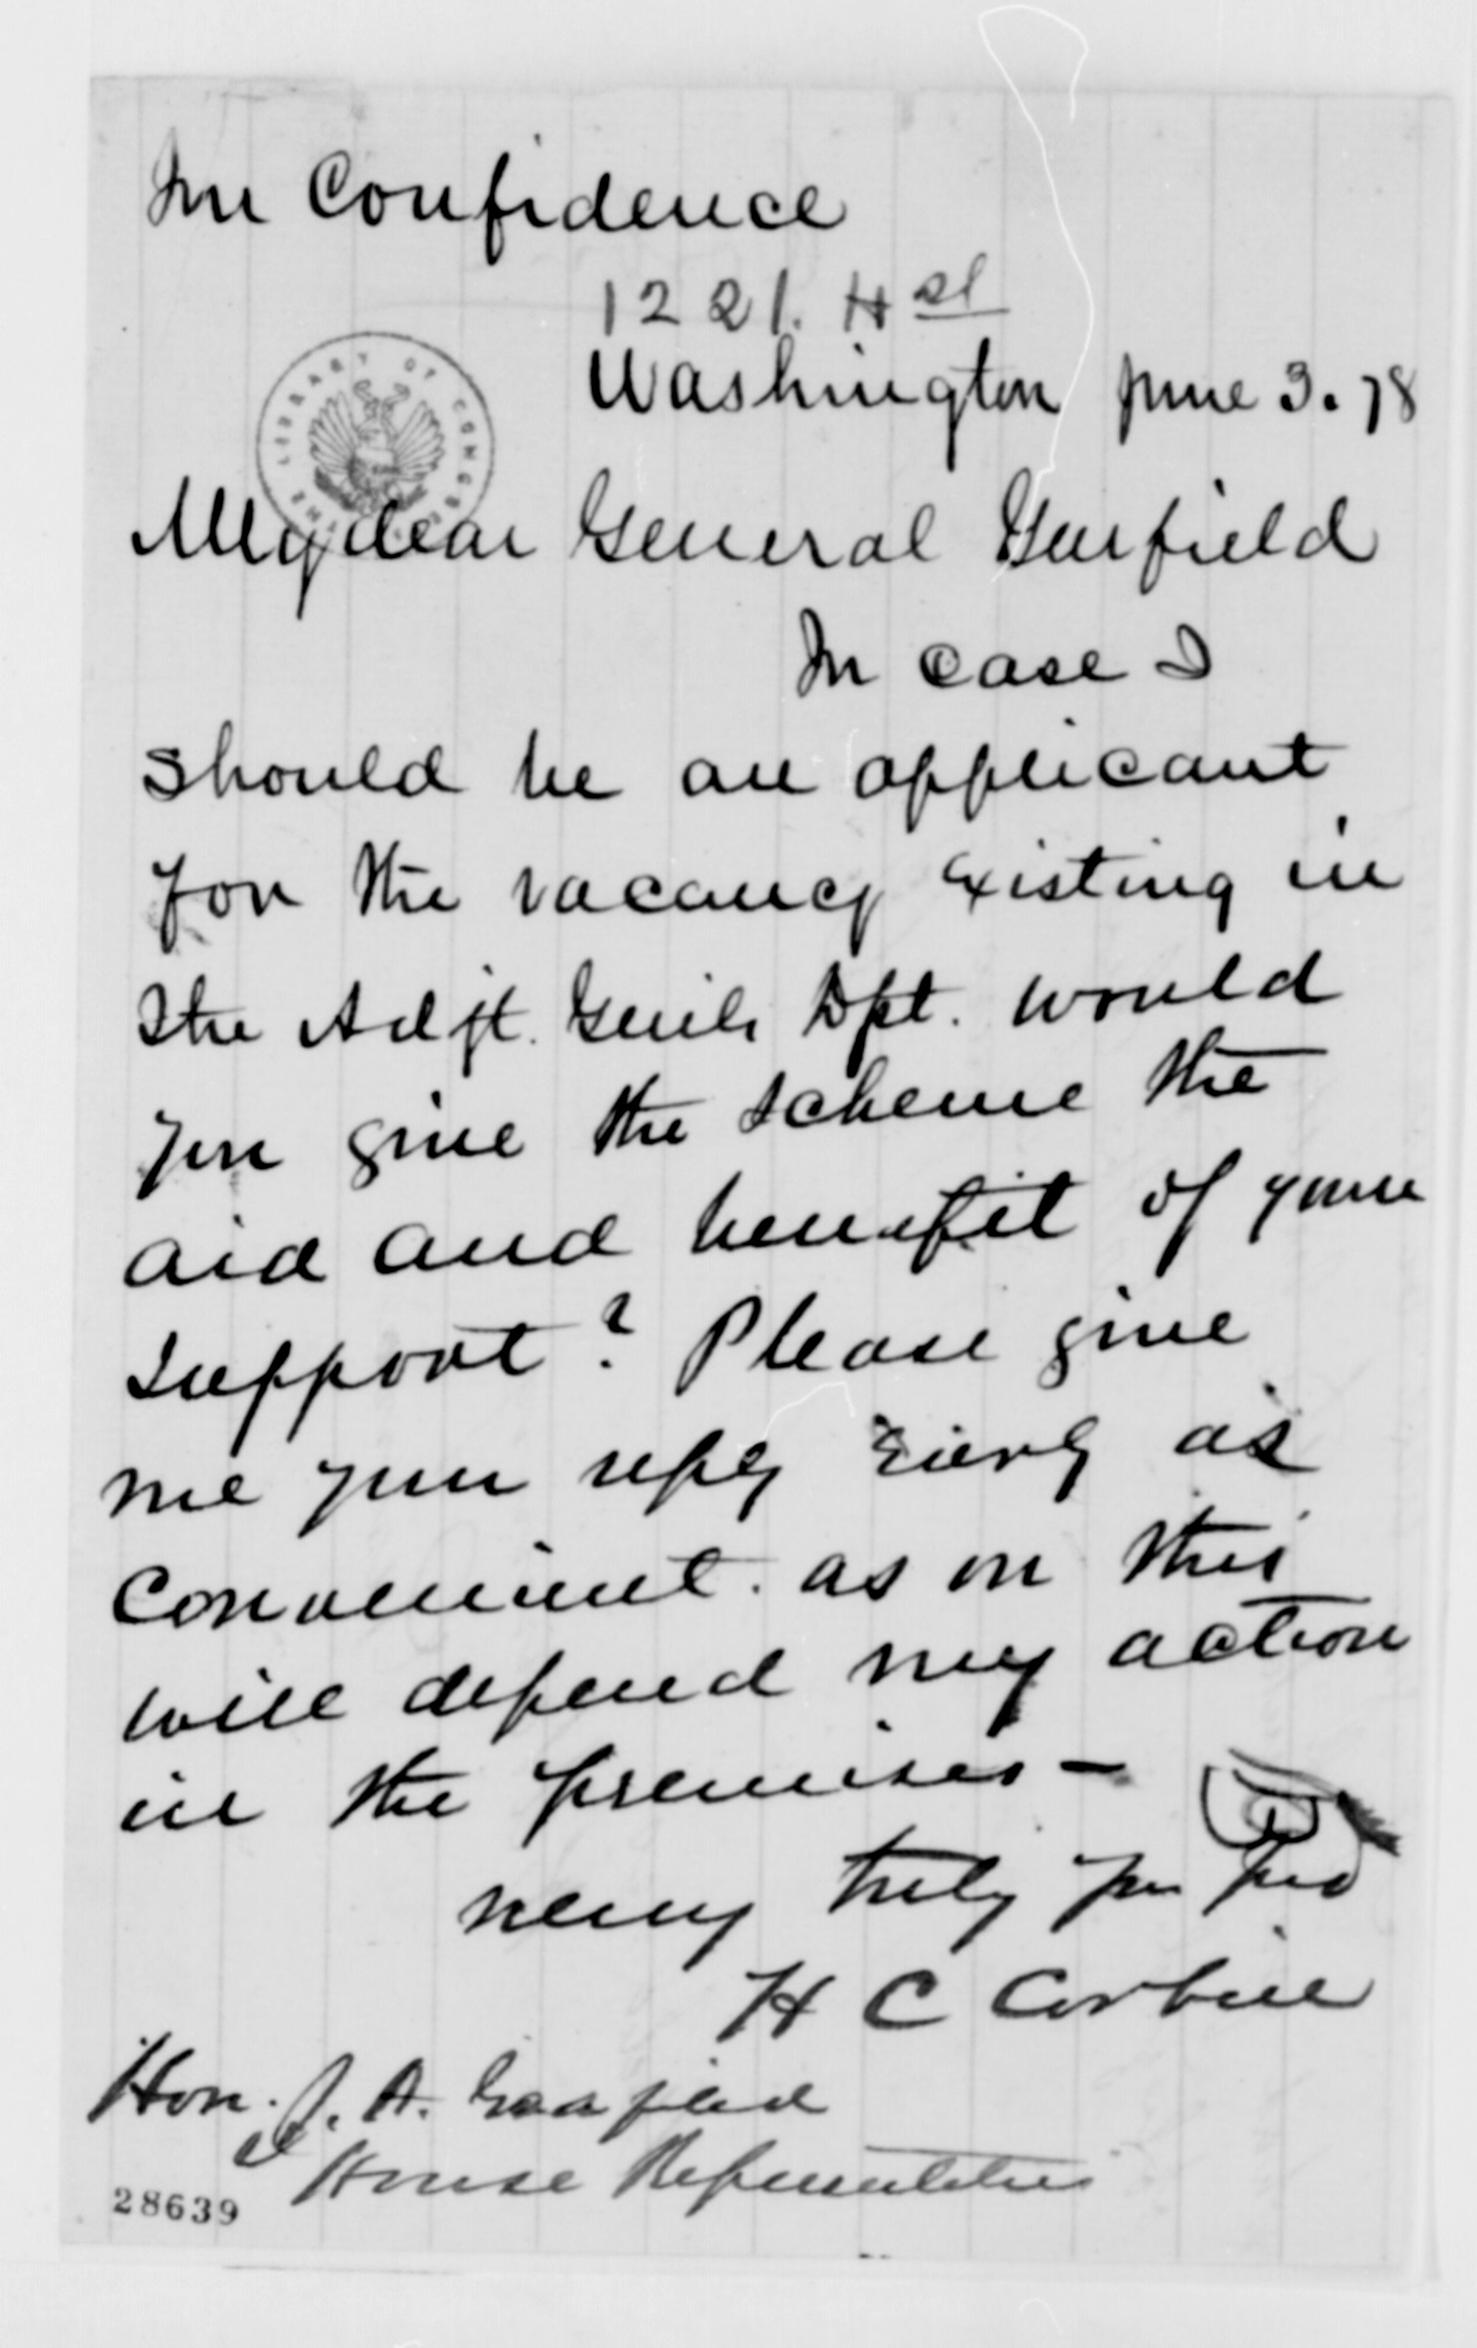 In Confidence
1221. H st
Washington June 3. 78
My dear General Garfield
In case I
should be an applicant
for the vacancy existing in
the Adjt. Genls Dpt. would
you give the scheme the
aid and benefit of your
support? Please give
me your reply early as
convenient. as on this
will depend my action
in the premises -
Very truly your frd
H C Corbin
Hon. J. A. Garfield
House Representatives
28639
LIBRARY OF CONGRESS